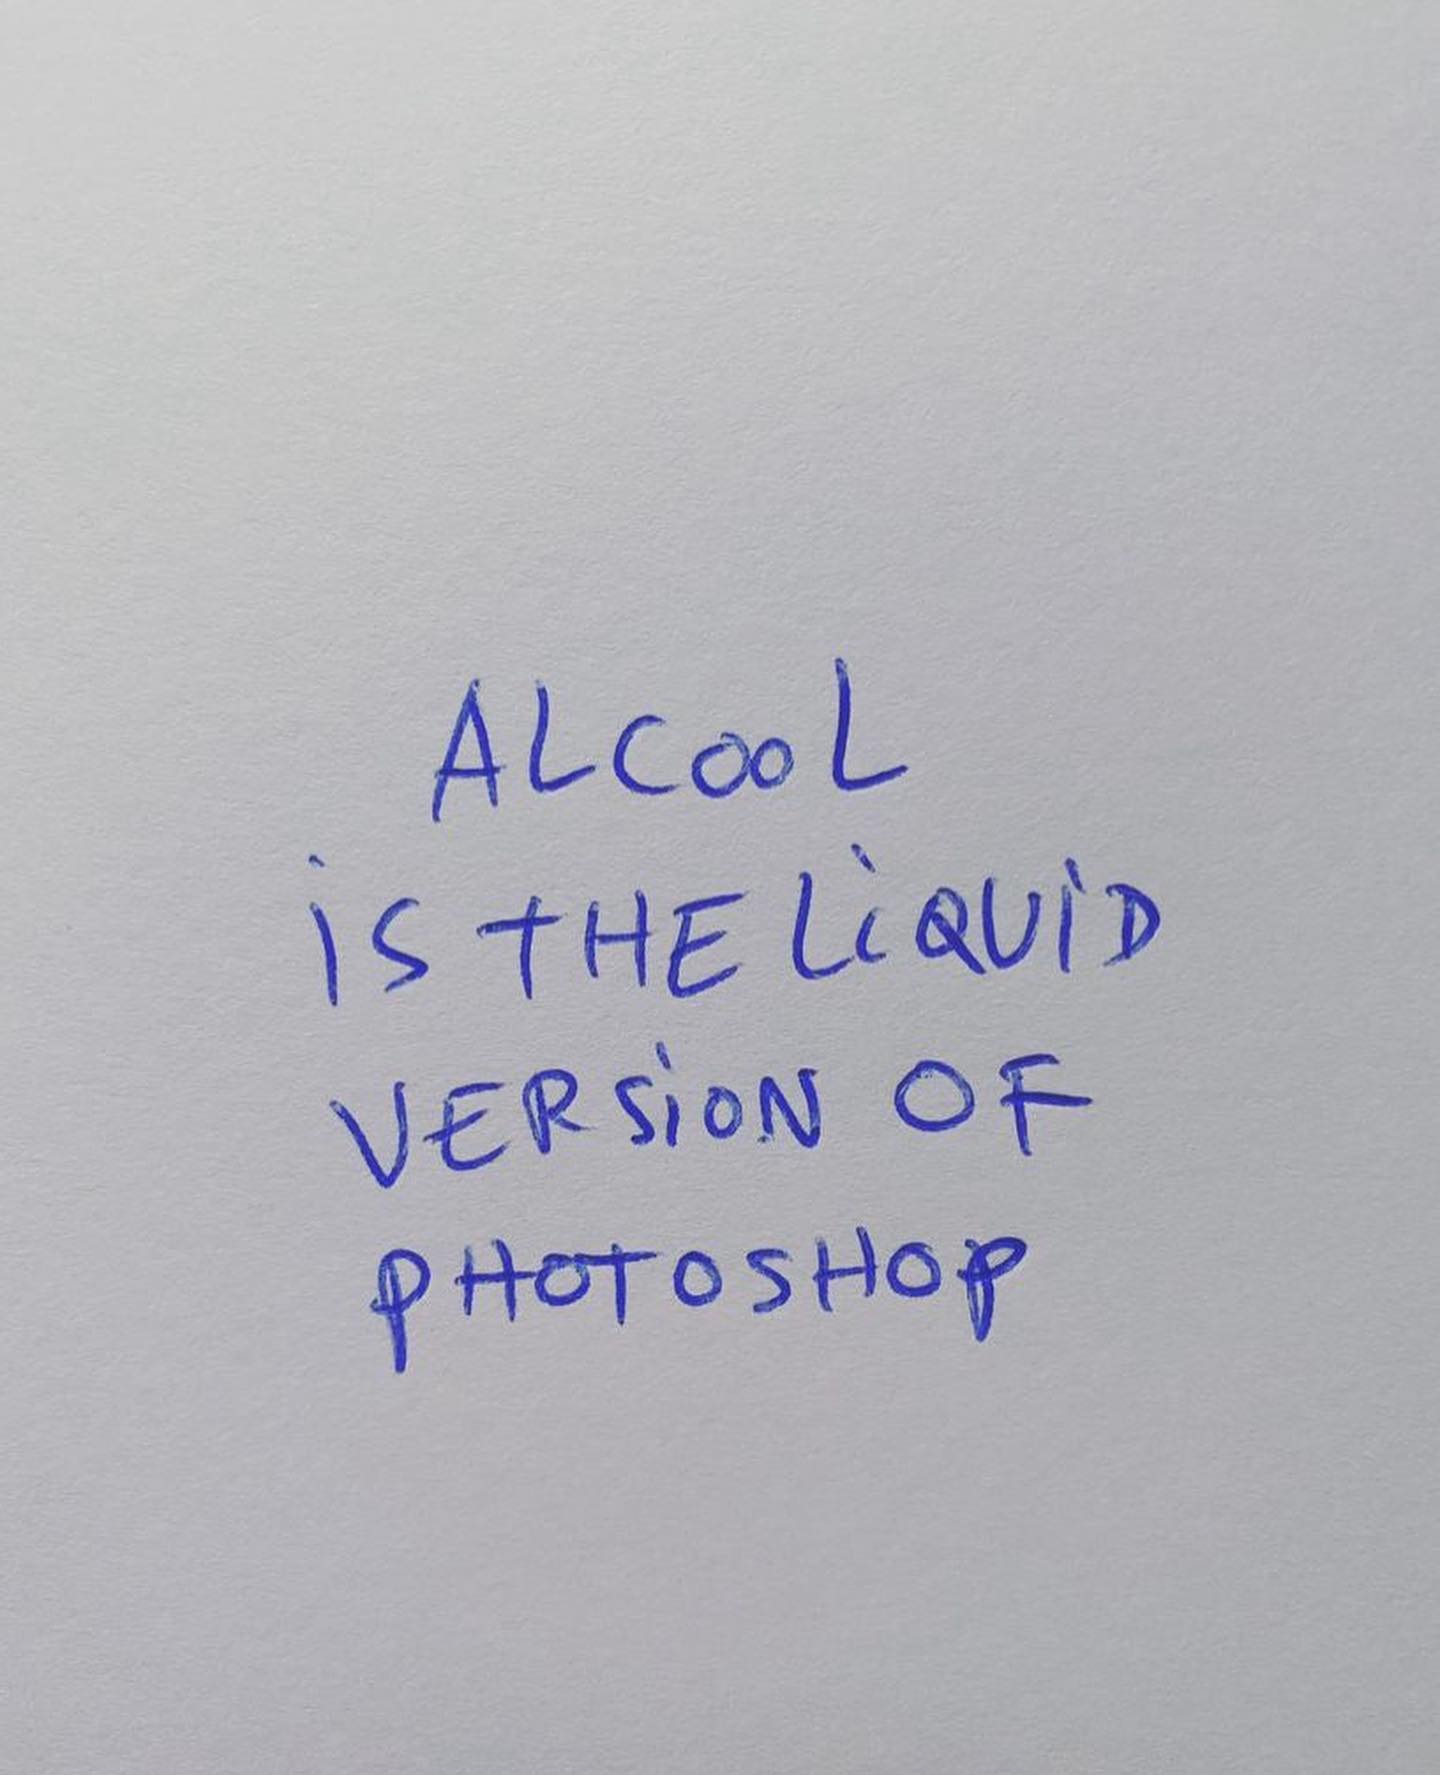 ALCOOL
iS THE LiQUiD
VERSiON OF
PHOTOSHOP